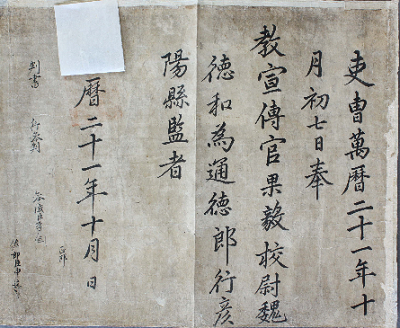 吏曹萬曆二十一年十
月初七日奉
教宣傳官果毅校尉魏
德和為通德郎行彦
陽縣監者
曆二十一年十月日
判書